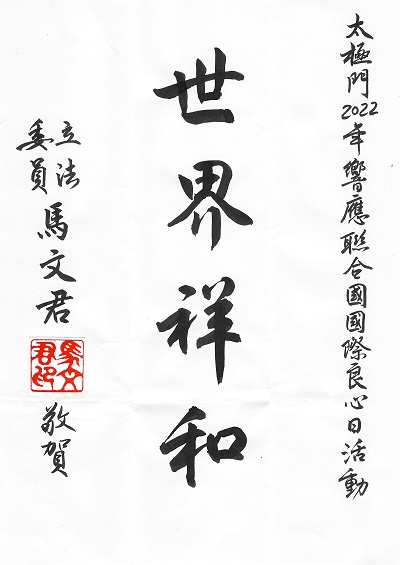 太極門2022年響應聯合國國際良心日活動
世界祥和
立法
委員
馬文君
馬文
君印
敬賀